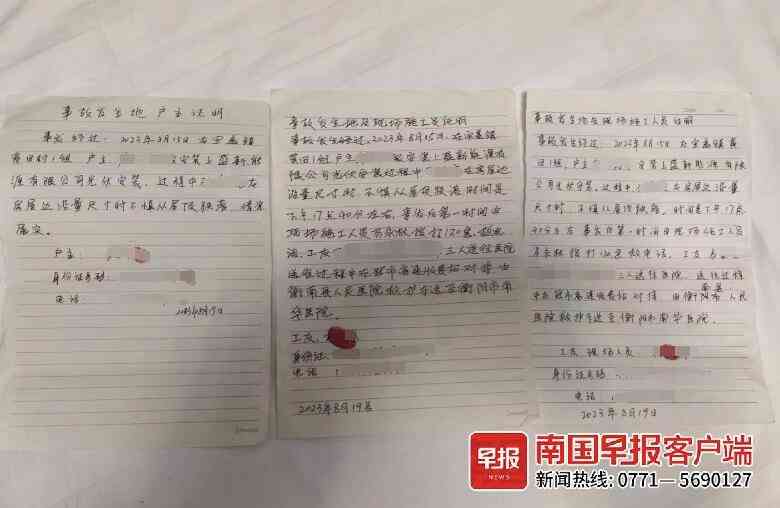 事故发生地户主证明
事发经过：2023年8月15日在宝盖镇
黄田村1组，户主 安装上益新能
源有限公司光伏安装，过程中 在
房屋边沿量尺寸时不慎从屋顶跌落，情况
属实。
户主：
身份证号码：
电话
2023年8月19日
事故发生地及现场施工员证明
事故发生经过，2023年8月15日，在宝盖镇
黄田1组户主 安装上益新能源有
限公司光伏安装过程中 在房屋边
沿量尺寸时，不慎从屋顶跌落时间是
下午17点40分左右，事发后第一时间由
现场施工人员 拨打120急救电
话，工友 三人送往医院
送往过程中在 高速收费站对接，由
衡南县人民医院救护车送至衡阳市南
华医院。
工友，
身份证：
电话：
2023年8月19号
事故发生地及现场施工人员证明
事故发生经过，2023年8月15日，在宝盖镇黄
田1组，户主 安装上益新能源有限
公司光伏安装，过程中 在房屋边沿量
尺寸时，不慎从屋顶跌落。时间是下午17点
40分左右 事发后第一时间由现场施工人员
拨打120急救电话，工友
三人送往医院，送往过程
中在 高速收费站对接，由衡南县人民
医院救护车送至衡阳市南华医院。
工友 现场人员
身份证号码
电话：
2023年8月19日
早报
NEWS
南国早报客户端
新闻热线: 0771—5690127